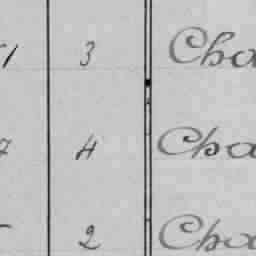 1 3 Cha
7 4 Cha
2 Cha